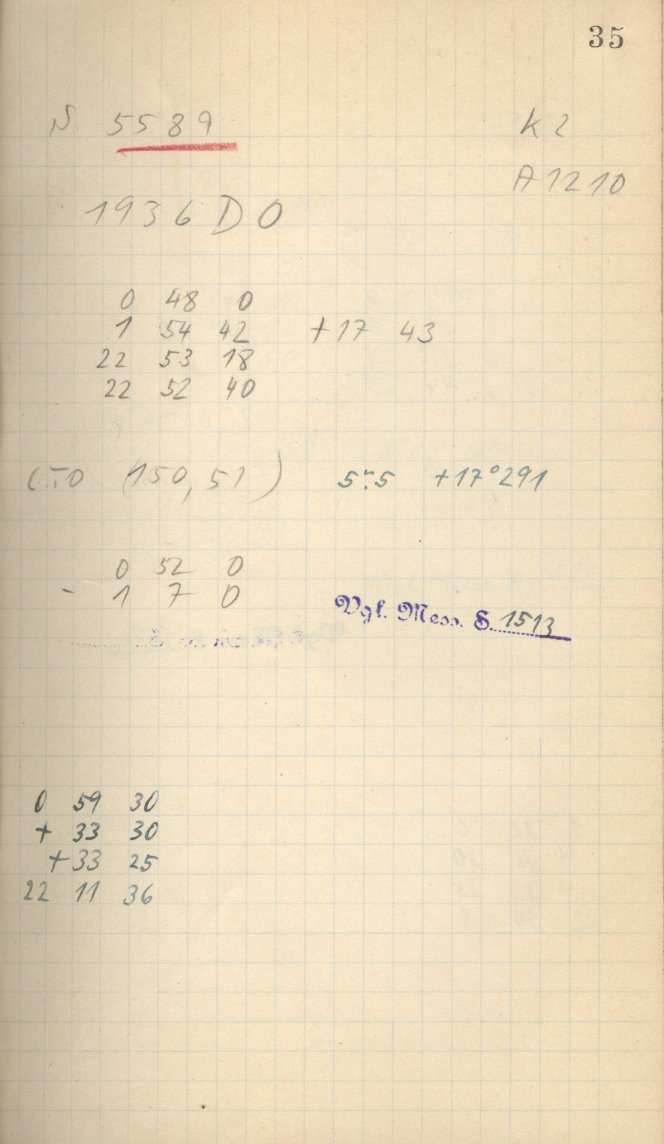 35
N 5589 K 2
A 1210
1936 D O
0 48 0
1 54 42 +17 43
22 53 18
22 52 40
(150, 51) 5m.5 +17°291
0 52 0
- 1 7 0
Vgl. Mess. S. 1513
0 59 30
+ 33 30
+33 25
22 11 36